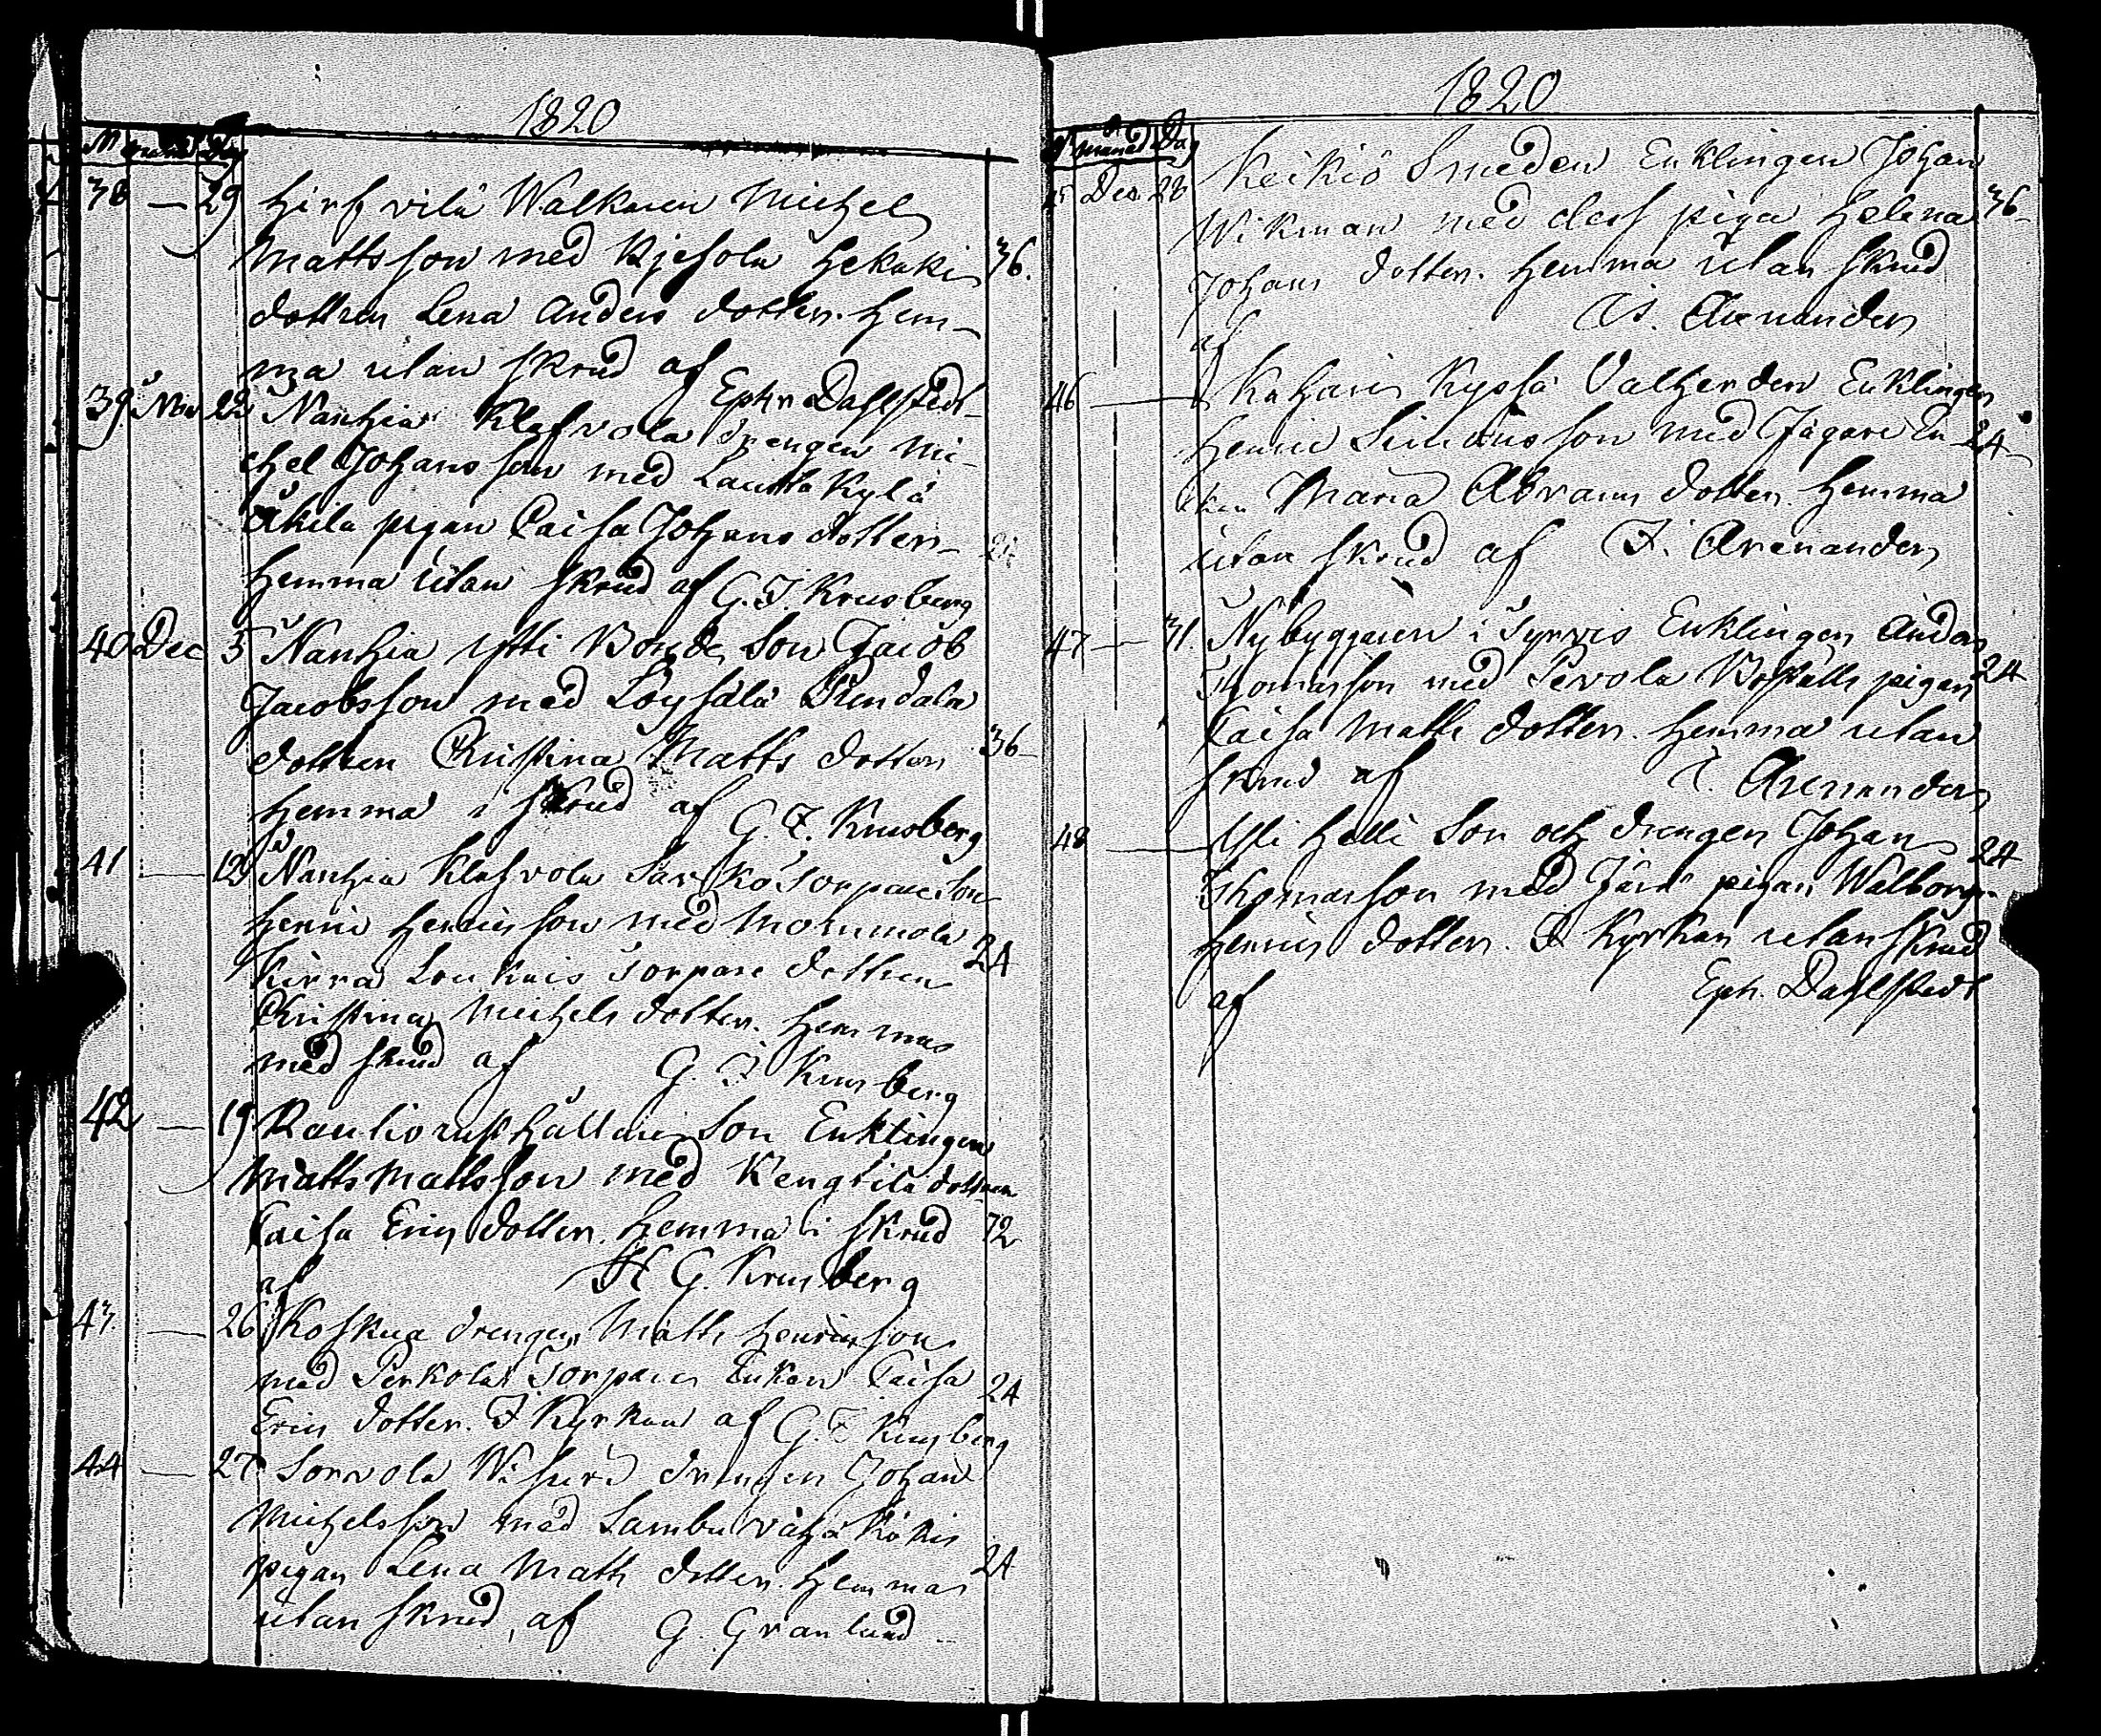 1820
N månad Dag
38 — 29 Hirfvilä Walkaren Michel
Mattsson med Kjesola Hekaki 36.
dottren Lena Anders dotter. Hem-
ma utan skrud af
Ephr Dahlstedt
39. Nov 22 Nanhia Klafvola drengen Mi-
chel Johansson med Lautta Kylä
Äkilu pigan Caisa Johans dotter 24
Hemma utan skrud af G. F. Krusberg
40 Dec 5 Nanhia Ytti Bonde Son Jacob
Jacobsson med Löysälä
dottren Christina Matts dotter 36
hemma i skrud af G. F. Krusberg
41 — 12 Nanhia Klafvola Särkö Torpare Son
Henric Henricsson med Mommola
Kirra Loukais Torpare dottren 24
Christina Michels dotter. Hemma
med skrud af G. F. Krusberg
42 — 19 Rautio rusthållare Son Enklingen
Matts Mattsson med Kengtilä dottren
Caisa Erics dotter. Hemma i skrud 72
af H G. Krusberg
43. — 26 Koskua drengen Matts Henricsson
med Perkola Torpare Enkan Caisa 24
Erics dotter. I Kyrkan af G. F. Krusberg
44 — 27 Sorvola Wisuri drengen Johan
Michelsson med Lambu
pigan Lena Matts dotter. Hemma 24
utan skrud, af G. Granlund
1820
N månad Dag
45 Dec 28 Keikiö Smeden Enklingen Johan
Wikman med dess piga Helena 36
Johans dotter. Hemma utan skrud
af Is. Arenander
46 — Kaharis Kyssä Valherden Enklingen
Henric Simonsson med Jägare En- 24
kan Maria Abrams dotter. Hemma
utan skrud af F. Arenander
47 — 31. Nybyggaren i Syrvis Enklingen Anders
Thomasson med Pevola Boställs pigan 24
Caisa Matts dotter. Hemma utan
skrud af F. Arenander
48 — Yli Helli Son och drengen Johan 24
Thomasson med Järä pigan Walborg
Henrics dotter. I Kyrkan utan skrud
af Eph. Dahlstedt